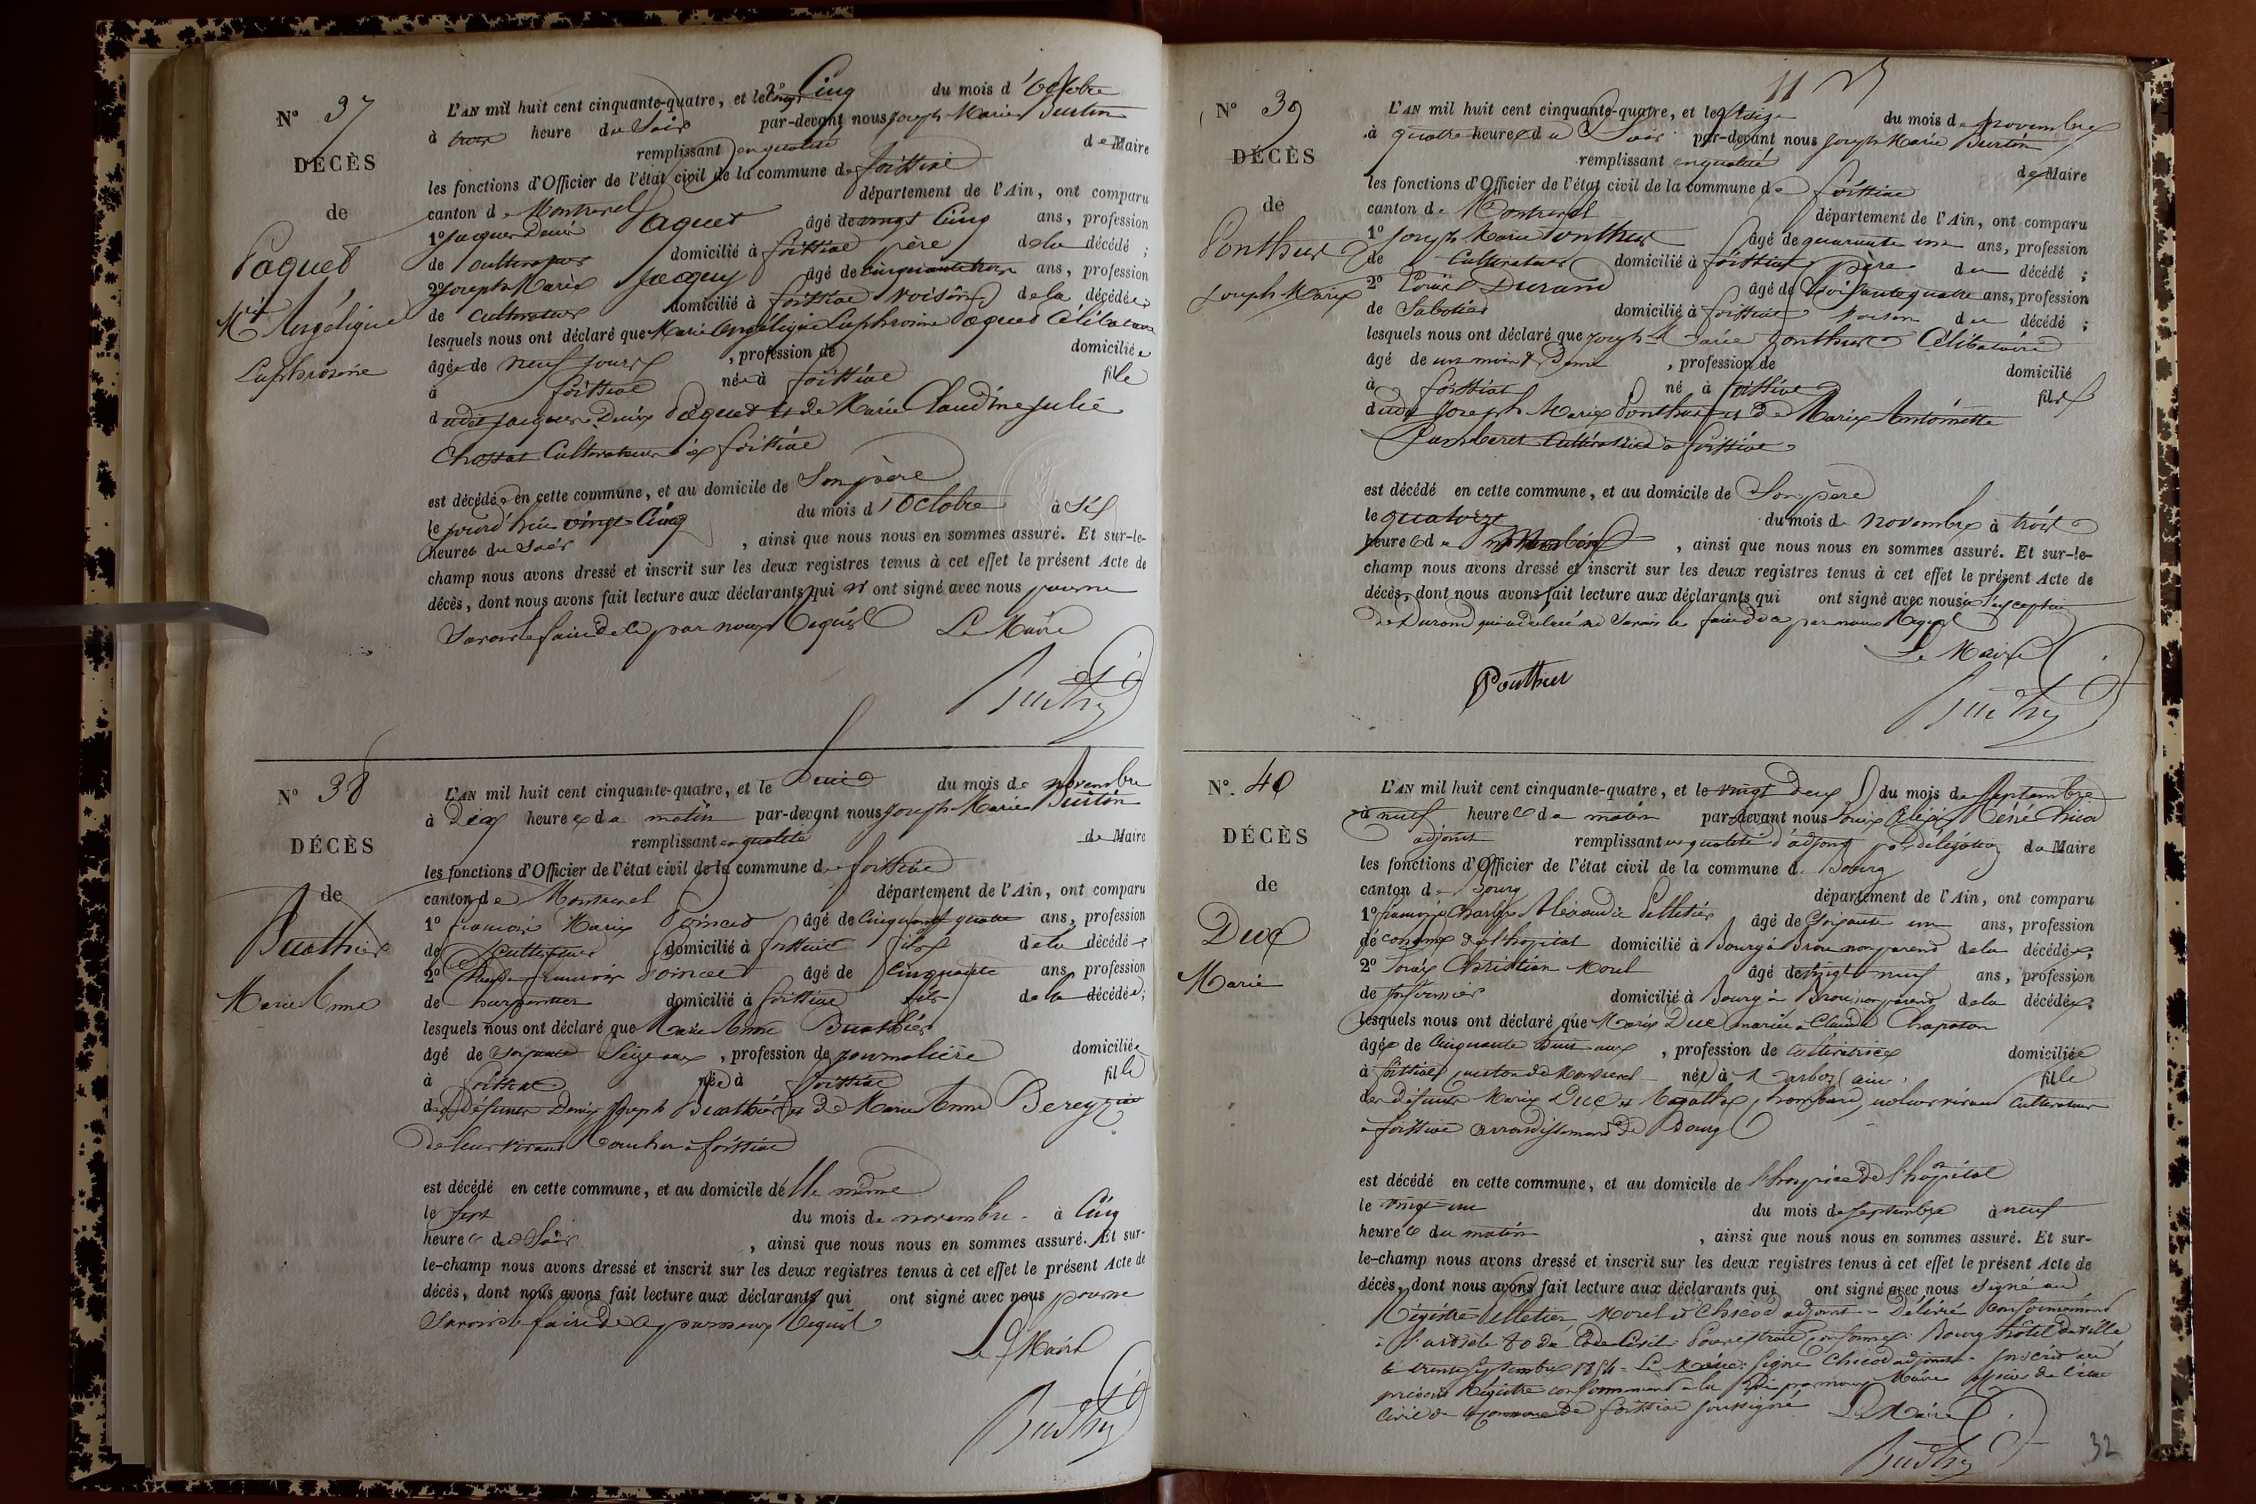 N° 37
DÉCÈS
de
Paquet
Mie Angélique
Euphrosine
L'AN mil huit cent cinquante-quatre, et le Cinq du mois d'octobre
à trois heure du Soir par-devant nous Joseph Marie Bustin
remplissant en qualité de Maire
les fonctions d'Officier de l'état civil de la commune de foissiat
canton de Montrevel département de l'Ain, ont comparu
1° Jacques Denis Paquet âgé de vingt Cinq ans, profession
de Cultivateur domicilié à foissiat père de la décédé ;
2° Joseph Marie Jacquy âgé de cinquante trois ans, profession
de Cultivateur domicilié à foissiat Voisin de la décédée
lesquels nous ont déclaré que Marie Angélique Euphrosine Paquet Célibataire
âgée de neuf jours , profession de domiciliée
à foissiat née à foissiat fille
dudit Jacques Denis Paquet et de Marie Claudine Julie
Chossat Cultivateur à foissiat
est décédée en cette commune, et au domicile de Son père
le jourd'hui vingt Cinq du mois d'Octobre à Six
heures du Soir , ainsi que nous nous en sommes assuré. Et sur-le-
champ nous avons dressé et inscrit sur les deux registres tenus à cet effet le présent Acte de
décès, dont nous avons fait lecture aux déclarants qui n'ont signé avec nous pour ne
Savoir le faire de ce par nous Requis Le Maire
N° 38
DÉCÈS
de
Buathier
Marie Anne
L'AN mil huit cent cinquante-quatre, et le du mois de novembre
à Dix heures du matin par-devant nous Joseph Marie Bustin
remplissant en qualité de Maire
les fonctions d'Officier de l'état civil de la commune de foissiat
canton de Montrevel département de l'Ain, ont comparu
1° francois Marie Poincet âgé de Cinquante quatre ans, profession
de Cultivateur domicilié à foissiat fils de la décédée
2° francois Poincet âgé de Cinquante ans profession
de charpentier domicilié à foissiat fils de la décédée;
lesquels nous ont déclaré que Marie Anne Buathier
âgé de Soixante Seize ans , profession de journalière domiciliée
à foissiat née à foissiat fille
des défunts Denis Joseph Buathier et de Marie Anne Bereyziat
de leur vivant à foissiat
est décédé en cette commune, et au domicile d'elle même
le Sept du mois de novembre à Cinq
heure du Soir , ainsi que nous nous en sommes assuré. Et sur-
le-champ nous avons dressé et inscrit sur les deux registres tenus à cet effet le présent Acte de
décès, dont nous avons fait lecture aux déclarants qui ont signé avec nous pour ne
Savoir le faire de ce par nous Requis
Le Maire
N° 39
DÉCÈS
de
Ponthus
Joseph Marie
L'AN mil huit cent cinquante-quatre, et le Seize du mois de novembre
à quatre heures du Soir par-devant nous Joseph Marie Bustin
remplissant en qualité de Maire
les fonctions d'Officier de l'état civil de la commune de foissiat
canton de Montrevel département de l'Ain, ont comparu
1° Joseph Marie Ponthus âgé de quarante un ans, profession
de Cultivateur domicilié à foissiat père du décédé ;
2° Louis Durand âgé de Soixante quatre ans, profession
de Sabotier domicilié à foissiat Voisin du décédé ;
lesquels nous ont déclaré que Joseph Marie Ponthus Célibataire
âgé de un mois & Demi , profession de domicilié
à foissiat né à foissiat fils
dudit Joseph Marie Ponthus et de Marie Antoinette
à foissiat
est décédé en cette commune, et au domicile de Son père
le quatorze du mois de novembre à trois
heure du , ainsi que nous nous en sommes assuré. Et sur-le-
champ nous avons dressé et inscrit sur les deux registres tenus à cet effet le présent Acte de
décès, dont nous avons fait lecture aux déclarants qui ont signé avec nous à l'exception
de Durand qui a déclaré ne Savoir le faire de ce par nous Requis
Le Maire
Ponthus
N° 40
DÉCÈS
de
Duc
Marie
L'AN mil huit cent cinquante-quatre, et le vingt deux du mois de Septembre
à neuf heures du matin par-devant nous Louis René Chicod
adjoint remplissant en qualité d'adjoint par délégation du Maire
les fonctions d'Officier de l'état civil de la commune de Bourg
canton de Bourg département de l'Ain, ont comparu
1° françois Charles Alexandre Pelletier âgé de Soixante un ans, profession
d'économe de l'hôpital domicilié à Bourg à Brou non parent de la décédée;
2° Louis Christian Morel âgé de vingt neuf ans, profession
de Infirmier domicilié à Bourg à Brou non parent de la décédée;
lesquels nous ont déclaré que Marie Duc mariée à Claude Chapaton
âgée de Cinquante huit ans , profession de cultivatrice domiciliée
à foissiat canton de Montrevel née à Marboz (ain) fille
des défunts Marie Duc et Agathe de leur vivant cultivateur
à foissiat arrondissement de Bourg
est décédé en cette commune, et au domicile de l'hospice de l'hôpital
le vingt un du mois de Septembre à neuf
heure du matin , ainsi que nous nous en sommes assuré. Et sur-
le-champ nous avons dressé et inscrit sur les deux registres tenus à cet effet le présent Acte de
décès, dont nous avons fait lecture aux déclarants qui ont signé avec nous signé au
Régistre Pelletier, Morel et Chicod adjoint = Délivré Conformément
à l'article 80 du Code Civil Pour extrait conforme Bourg hôtel de ville
le trente Septembre 1854 = Le Maire: Signé Chicod adjoint. Inscrit au
présent Régistre conformément à la loi par nous Maire officier de l'état
Civil de la commune de foissiat soussigné Le Maire
32